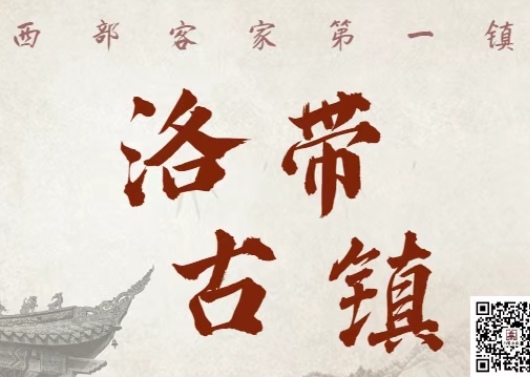 西部客家第一镇
洛带
古镇